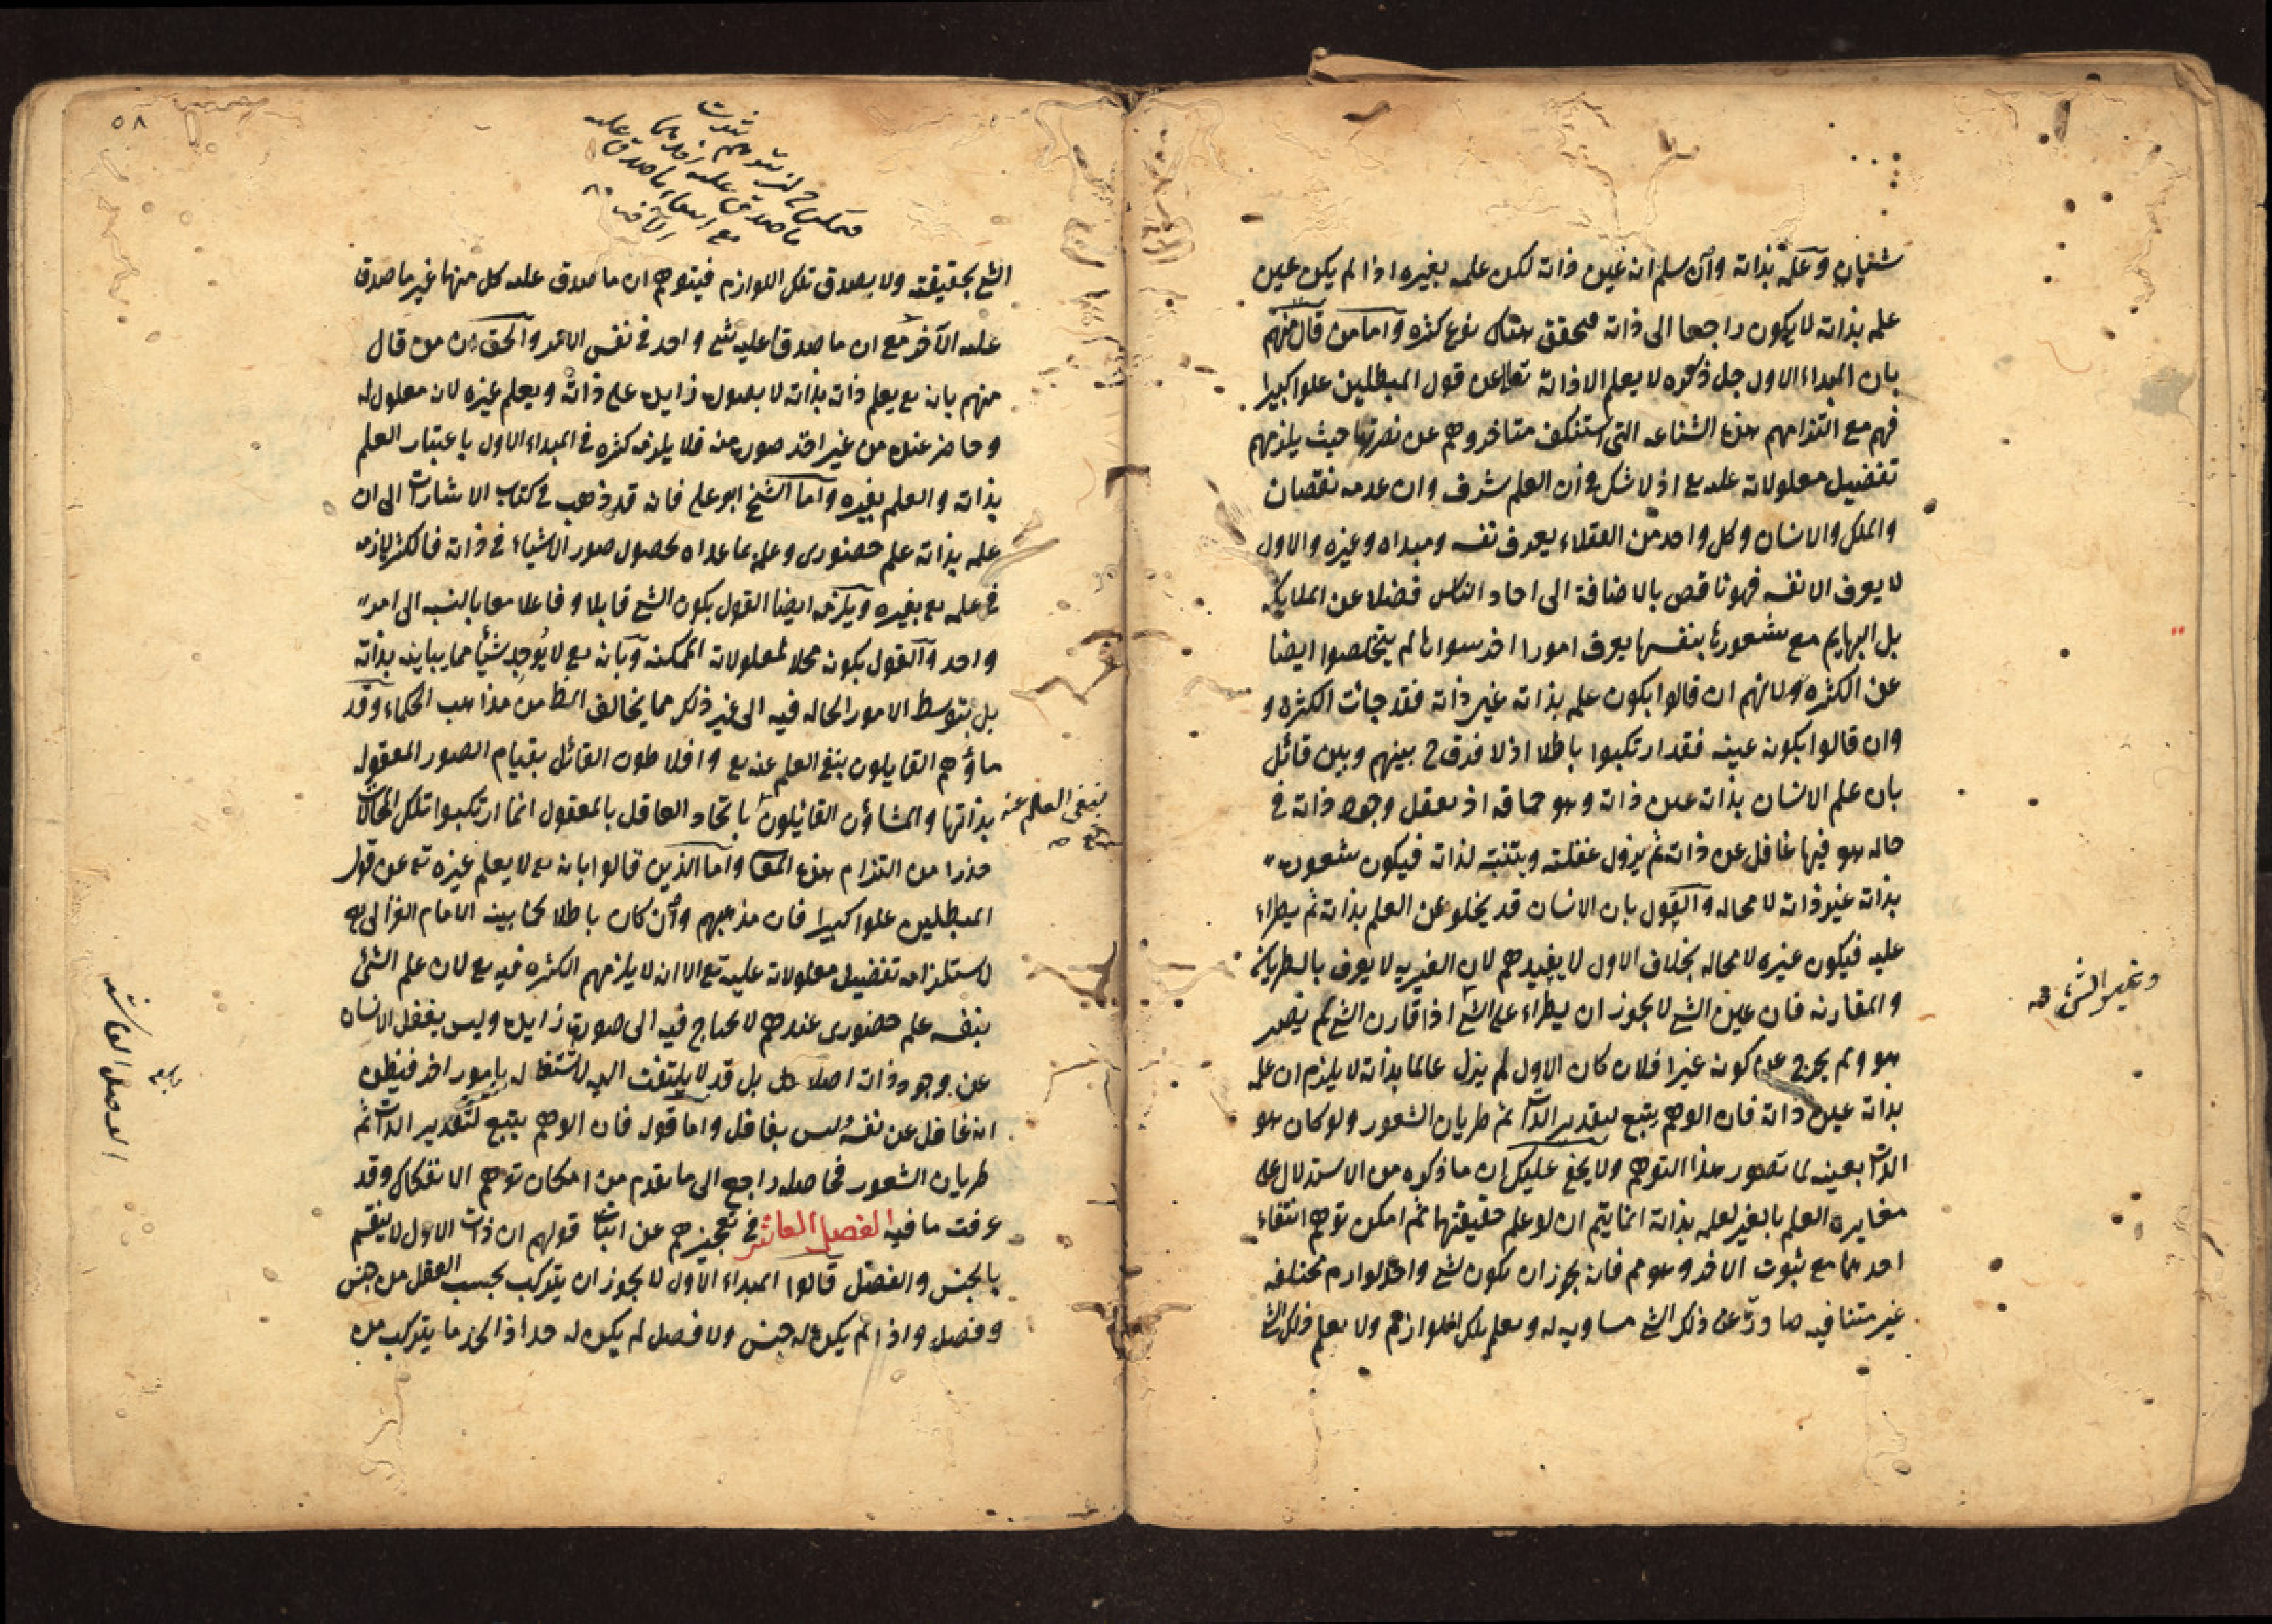 شيئان وعلمه بذاته وان سلم انه عين ذاته لكن علمه بغيره اذا لم يكن عين
علمه بذاته لا يكون راجعا الى ذاته فتحقق هناك نوع كثره واما من قال منهم
بان المبداء الاول جل ذكره لا يعلم الا ذاته تعالى عن قول المبطلين علوا كبيرا
فهم مع التزامهم هذه الشناعه التى استنكف متاخروهم عن نصرتها حيث يلزمهم
تفضيل معلولاته عليه تع اذ لا شك فى ان العلم شرف وان عدمه نقصان
والملك والانسان وكل واحد من العقلاء يعرف نفسه ومبداه وغيره والاول
لا يعرف الا نفسه فهو ناقص بالاضافة الى احاد الناس فضلا عن الملايكه
بل البهايم مع شعورها بنفسها يعرف امورا اخر سواها لم يتخلصوا ايضا
عن الكثره ولانهم ان قالوا بكون علمه بذاته غير ذاته فقد جائت الكثره و
وان قالوا بكونه عينه فقد ارتكبوا باطلا اذ لا فرق ح بينهم وبين قائل
بان علم الانسان بذاته عين ذاته وهو حماقه اذ يعقل وجود ذاته فى
حاله هو فيها غافل عن ذاته ثم يزول غفلته ويتنبه لذاته فيكون شعوره
بذاته غير ذاته لا محاله والقول بان الانسان قد يخلو عن العلم بذاته ثم يطراء
عليه فيكون غيره لا محاله بخلاف الاول لا يفيدهم لان الغيريه لا يعرف بالطريان
والمقارنه فان عين الشئ لا يجوز ان يطراء على الشئ اذا قارن الشئ لم يصر
هو ولم يخرج عن كونه غيرا فلان كان الاول لم يزل عالما بذاته لا يلزم ان علمه
بذاته عين ذاته فان الوهم يتبع لتقدير الذات ثم طريان الشعور ولو كان هو
الذات بعينه لما تصور هذا التوهم ولا يخفى عليك ان ما ذكره من الاستدلال على
مغايره العلم بالغير لعلمه بذاته انما يتم ان لو علم حقيقتهما ثم امكن توهم انتفاء
احدهما مع ثبوت الاخر وهو مم فانه يجوز ان يكون لشئ واحد لوازم مختلفه
غير متنافيه صادقة على ذلك الشئ مساويه له ويعلم تلك اللوازم ولا يعلم ذلك الشئ
وغير الشئ صح
٥٨
ما صدق عليه
الشئ بحقيقته ولا يصدق تلك اللوازم فيتوهم ان ما صدق عليه كل منها غير ما صدق
عليه الآخر مع ان ما صدقا عليه شئ واحد فى نفس الامر والحق ان من قال
منهم بانه تع يعلم ذاته بذاته لا بصوره زايده على ذاته ويعلم غيره لانه معلول له
وحاضر عنده من غير اخذ صوره منه فلا يلزمه كثره فى المبداء الاول باعتبار العلم
بذاته والعلم بغيره واما الشيخ ابو على فانه قد ذهب فى كتاب الاشارات الى ان
علمه بذاته علم حضورى وعلمه بما عداه بحصول صور الاشياء فى ذاته فالكثره لازمه
فى علمه تع بغيره ويلزمه ايضا القول بكون الشئ قابلا وفاعلا معا بالنسبه الى امر
واحد والقول بكونه محلا لمعلولاته الممكنه وبانه تع لا يوجد شيأ مما يباينه بذاته
بل بتوسط الامور الحاله فيه الى غير ذلك مما يخالف الظ من مذاهب الحكماء وقد
ماؤهم القايلون بنفى العلم عنه تع وافلاطون القائل بقيام الصور المعقوله
بذاتها والمشاؤن القائيلون باتحاد العاقل بالمعقول انما ارتكبوا تلك المحالات
بنفى العلم عنه
حذرا من التزام هذه المعا واما الذين قالوا بانه تع لا يعلم غيره تع عن قول
المبطلين علوا كبيرا فان مذهبهم وان كان باطلا كما بينه الامام الغزالى
لاستلزامه تفضيل معلولاته عليه تع الا انه لا يلزمهم الكثره فيه تع لان علم الشئ
بنفسه علم حضورى عندهم لا يحتاج فيه الى صورة زايده وليس يغفل الانسان
عن وجود ذاته اصلا بل قد لا يلتفت اليه لاشتغاله بامور اخر فيظن
انه غافل عن نفسه وليس بغافل واما قوله فان الوهم يتبع لتقدير الذات ثم
طريان الشعور فحاصله راجع الى ما تقدم من امكان توهم الانفكاك وقد
عرفت ما فيه الفصل العاشر فى تعجيزهم عن اثبات قولهم ان ذات الاول لا ينقسم
بالجنس والفصل قالوا المبداء الاول لا يجوز ان يتركب بحسب العقل من جنس
وفصل واذا لم يكن له جنس ولا فصل لم يكن له حد اذ الحد ما يتركب من
الفصل العاشر